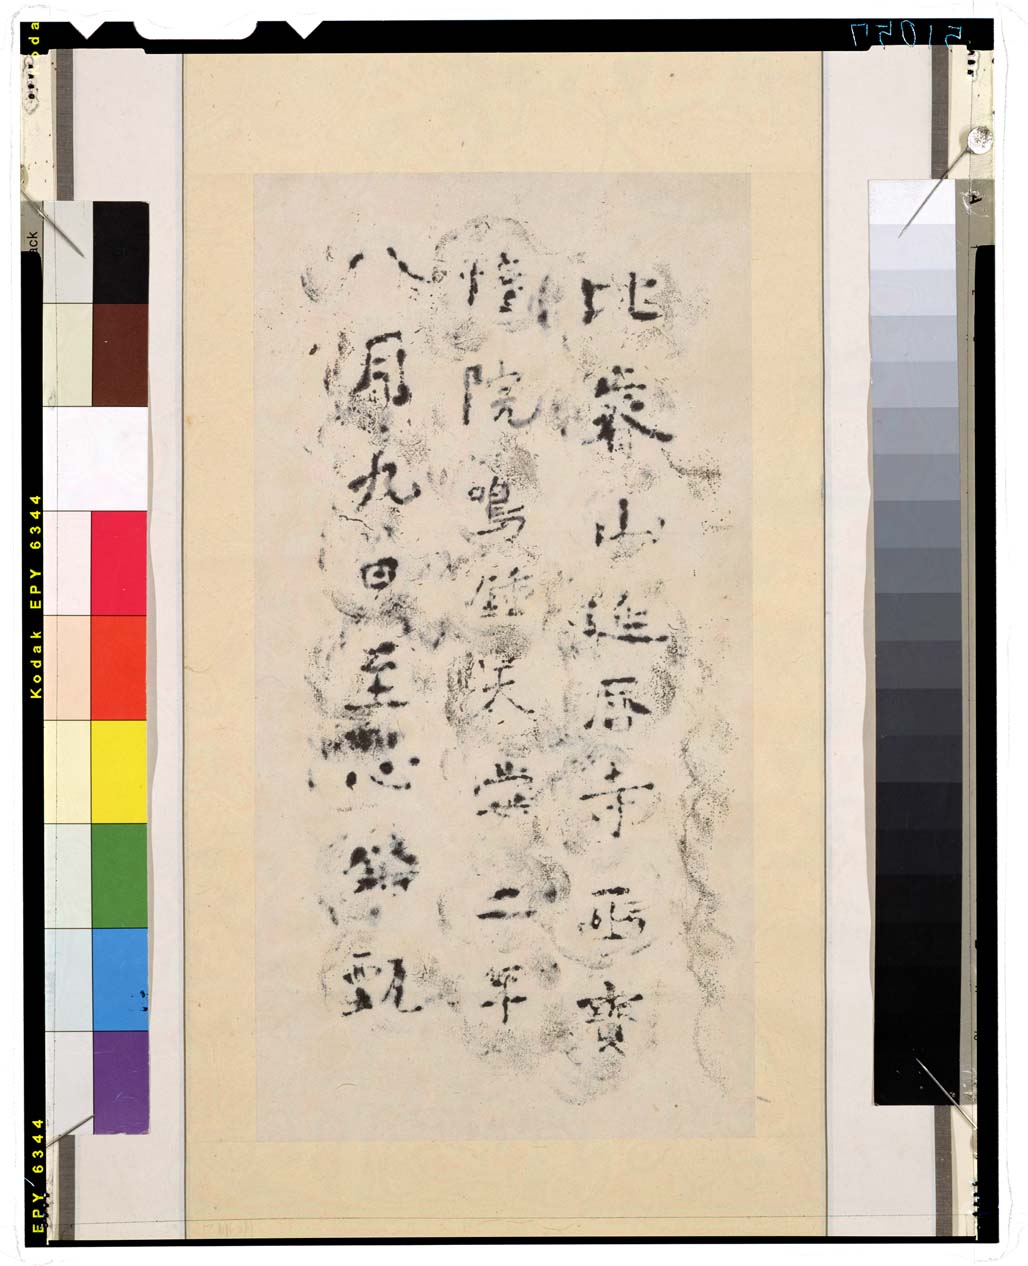 比叡山延曆寺西寶
幢院鳴鐘天安二年
八月九日至心鑄甄
Kodak EPY 6344
EPY 6344
A